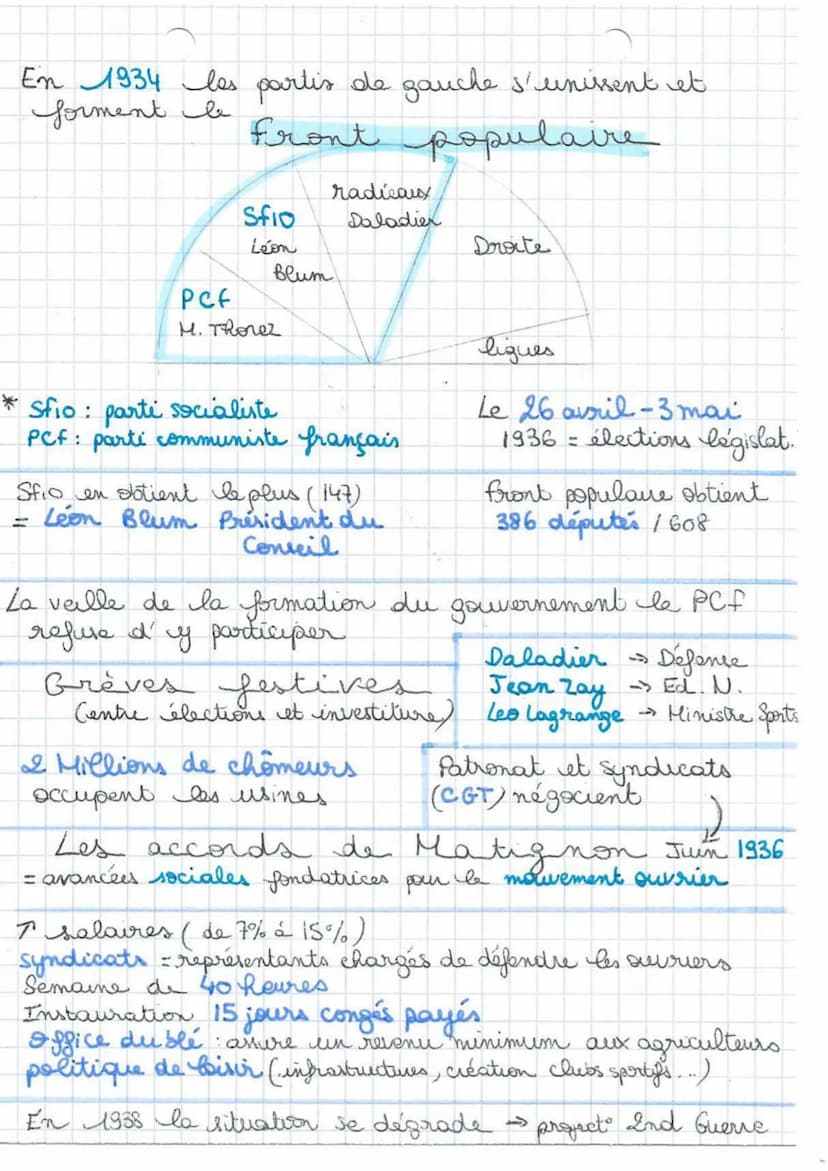 En 1934 les partis de gauche s'unissent et
forment le
Front populaire
radicaux
Daladier
Sfio
Léon
Blum
Droite
PCf
M. Thorez
ligues
* Sfio : parti socialiste
PCf : parti communiste français
Le 26 avril - 3 mai
1936 = élections législat.
Sfio en obtient le plus (147)
= Léon Blum Président du
Conseil
front populaire obtient
386 députés / 608
La veille de la formation du gouvernement le PCf
refuse d'y participer
Daladier → Défense
Jean Zay → Ed. N.
Leo Lagrange → Ministre Sports
Grèves festives
(entre élections et investiture)
2 Millions de chômeurs
occupent les usines
Patronat et syndicats
(CGT) négocient
Les accords de Matignon Juin 1936
= avancées sociales fondatrices pour le mouvement ouvrier
↑ salaires (de 7% à 15%)
syndicats = représentants chargés de défendre les ouvriers
Semaine de 40 heures
Instauration 15 jours congés payés
Office du blé : assure un revenu minimum aux agriculteurs
politique de loisir (infrastructures, création clubs sportifs...)
En 1938 la situation se dégrade → project° 2nd Guerre